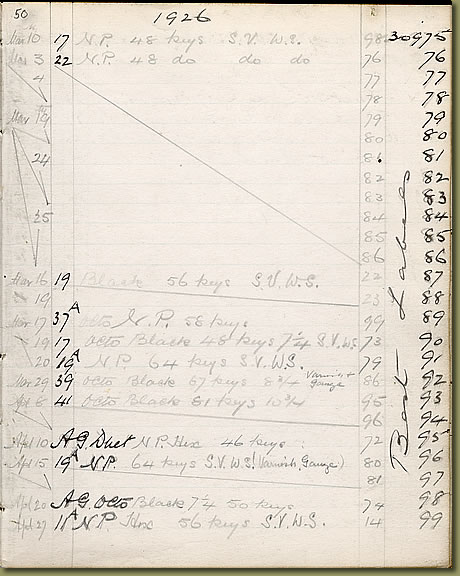 50 1926
Mar 10 17 N.P. 48 keys S.V. W.S. 98 30975
Mar 3 22 N.P. 48 do do do 76 76
4 77 77
78 78
Mar 19 79 79
80 80
24 81 81
82 82
83 83
25 84 84
85 85
86 86
Mar 16 19 Black 56 keys S.V. W.S. 22 87
19 23 88
Mar 17 37A Octo N.P. 56 keys 99 89
19 17 Octo Black 48 keys 7¼ S.V. W.S. 73 90
20 19A N.P. 64 keys S.V. W.S. 79 91
Mar 29 39 Octo Black 67 keys 8¾ Varnish & Gauge 86 92
Apl 6 41 Octo Black 81 keys 10¾ 95 93
96 94
Apl 10 A.G. Duet N.P. Hex 46 keys 72 95
Apl 15 19A N.P. 64 keys S.V. W.S. (Varnish, Gauge) 80 96
81 97
Apl 20 A.G. Octo Black 7¼ 50 keys 74 98
Apl 27 11A N.P. Hex 56 keys S.V. W.S. 14 99
Best Labels